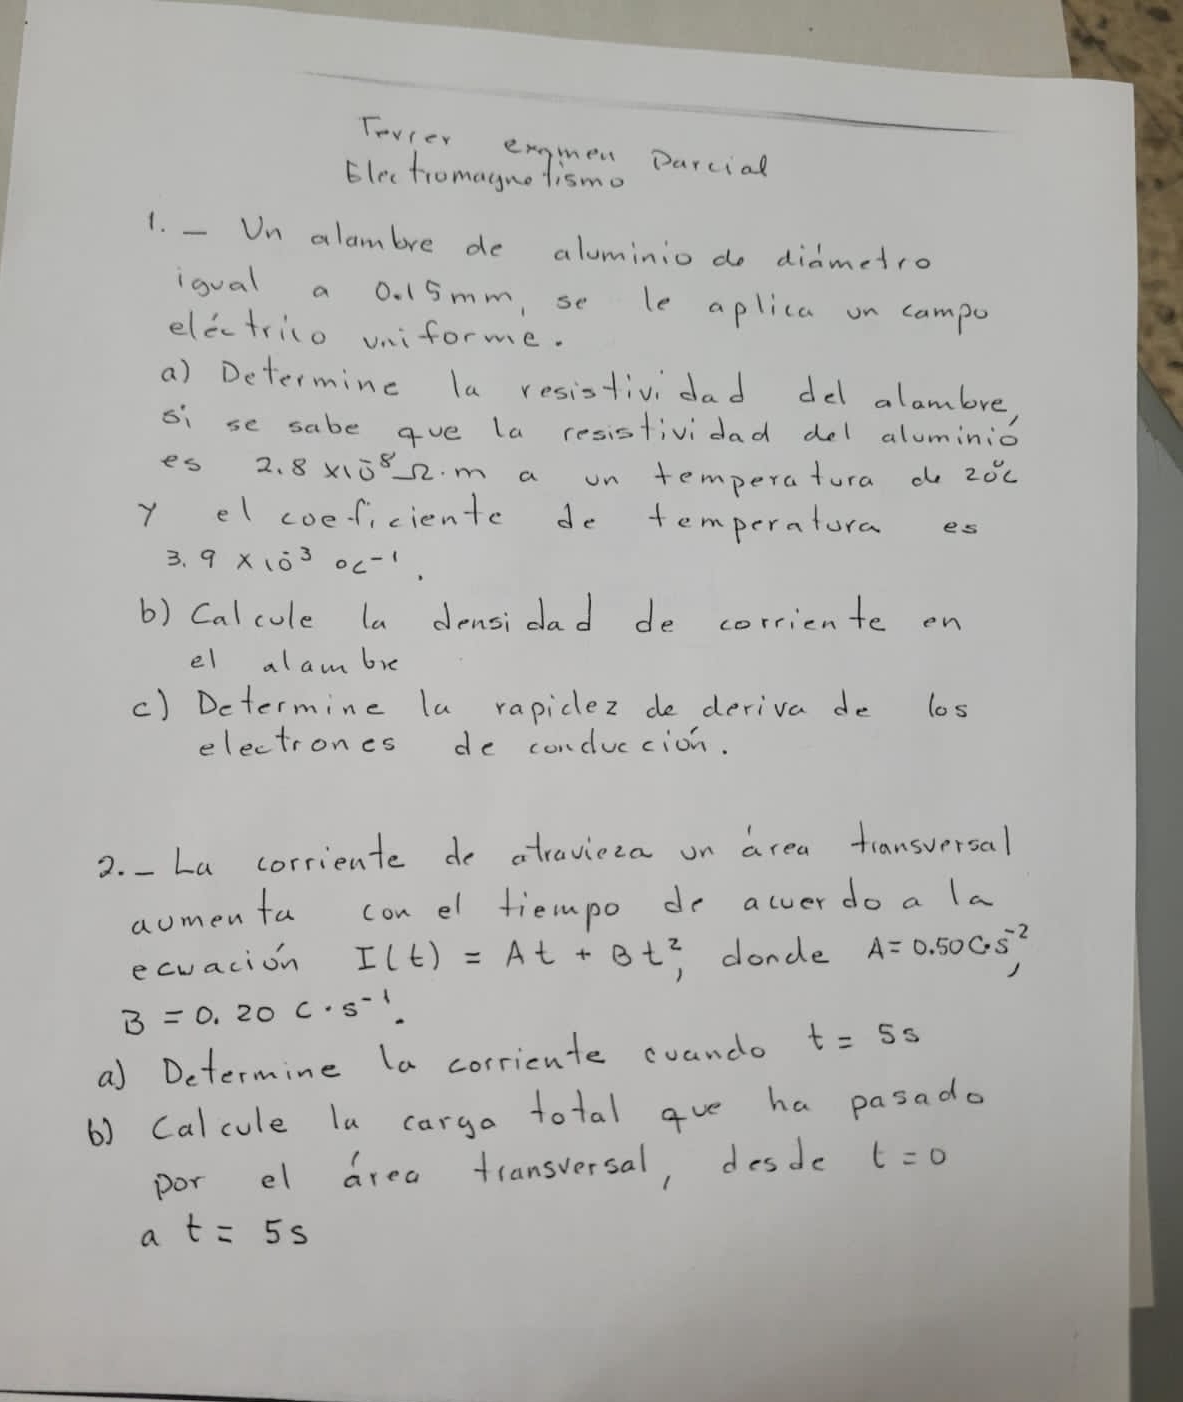 Tercer examen Parcial
Electromagnetismo
1.- Un alambre de aluminio de diámetro
igual a 0.15mm, se le aplica un campo
eléctrico uniforme.
a) Determine la resistividad del alambre,
si se sabe que la resistividad del aluminio
es 2.8 x10⁻⁸ Ω·m a un temperatura de 20°C
y el coeficiente de temperatura es
3.9 x10⁻³ °C⁻¹.
b) Calcule la densidad de corriente en
el alambre
c) Determine la rapidez de deriva de los
electrones de conducción.
2.- La corriente de atravieza un área transversal
aumenta con el tiempo de acuerdo a la
ecuación I(t) = At + Bt², donde A= 0.50 C·s⁻²,
B = 0.20 C·s⁻¹.
a) Determine la corriente cuando t = 5s
b) Calcule la carga total que ha pasado
por el área transversal, desde t=0
a t = 5s